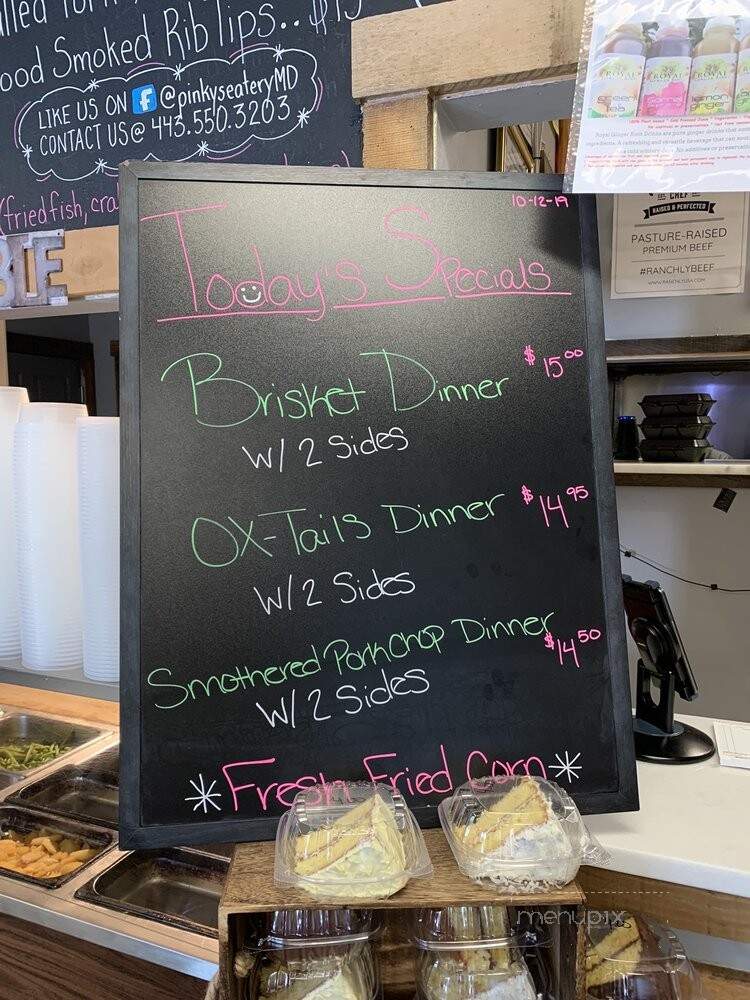 ood Smoked Rib Tips..
LIKE US ON f @pinkyseateryMD
CONTACT US@ 443.550.3203
(fried fish, cra
10-12-19
Today's Specials
Brisket Dinner $15.00
W/ 2 Sides
OX-Tails Dinner $14.95
W/ 2 Sides
Smothered Pork Chop Dinner $14.50
W/ 2 Sides
*Fresh Fried Corn*
ROYAL
ROYAL
ROYAL
green
lemon
ginger
RAISED & PERFECTED
PASTURE-RAISED
PREMIUM BEEF
#RANCHLYBEEF
WWW.RANCHLYUSA.COM
menupix